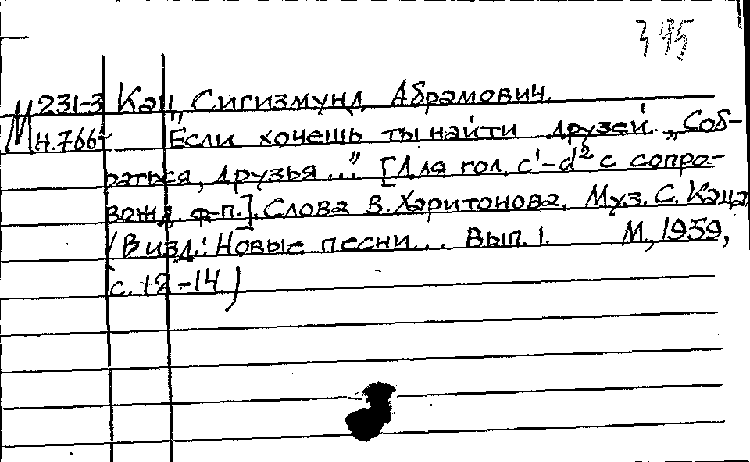 395
М 231-3 Кац, Сигизмунд Абрамович.
Н.766 Если хочешь ты найти друзей. „Соб-
раться, друзья..." [Для гол. c¹-d² с сопро-
вожд. ф-п.]. Слова В. Харитонова. Муз. С. Каца
(В изд.: Новые песни.. Вып. 1. М., 1959,
с. 12-14)